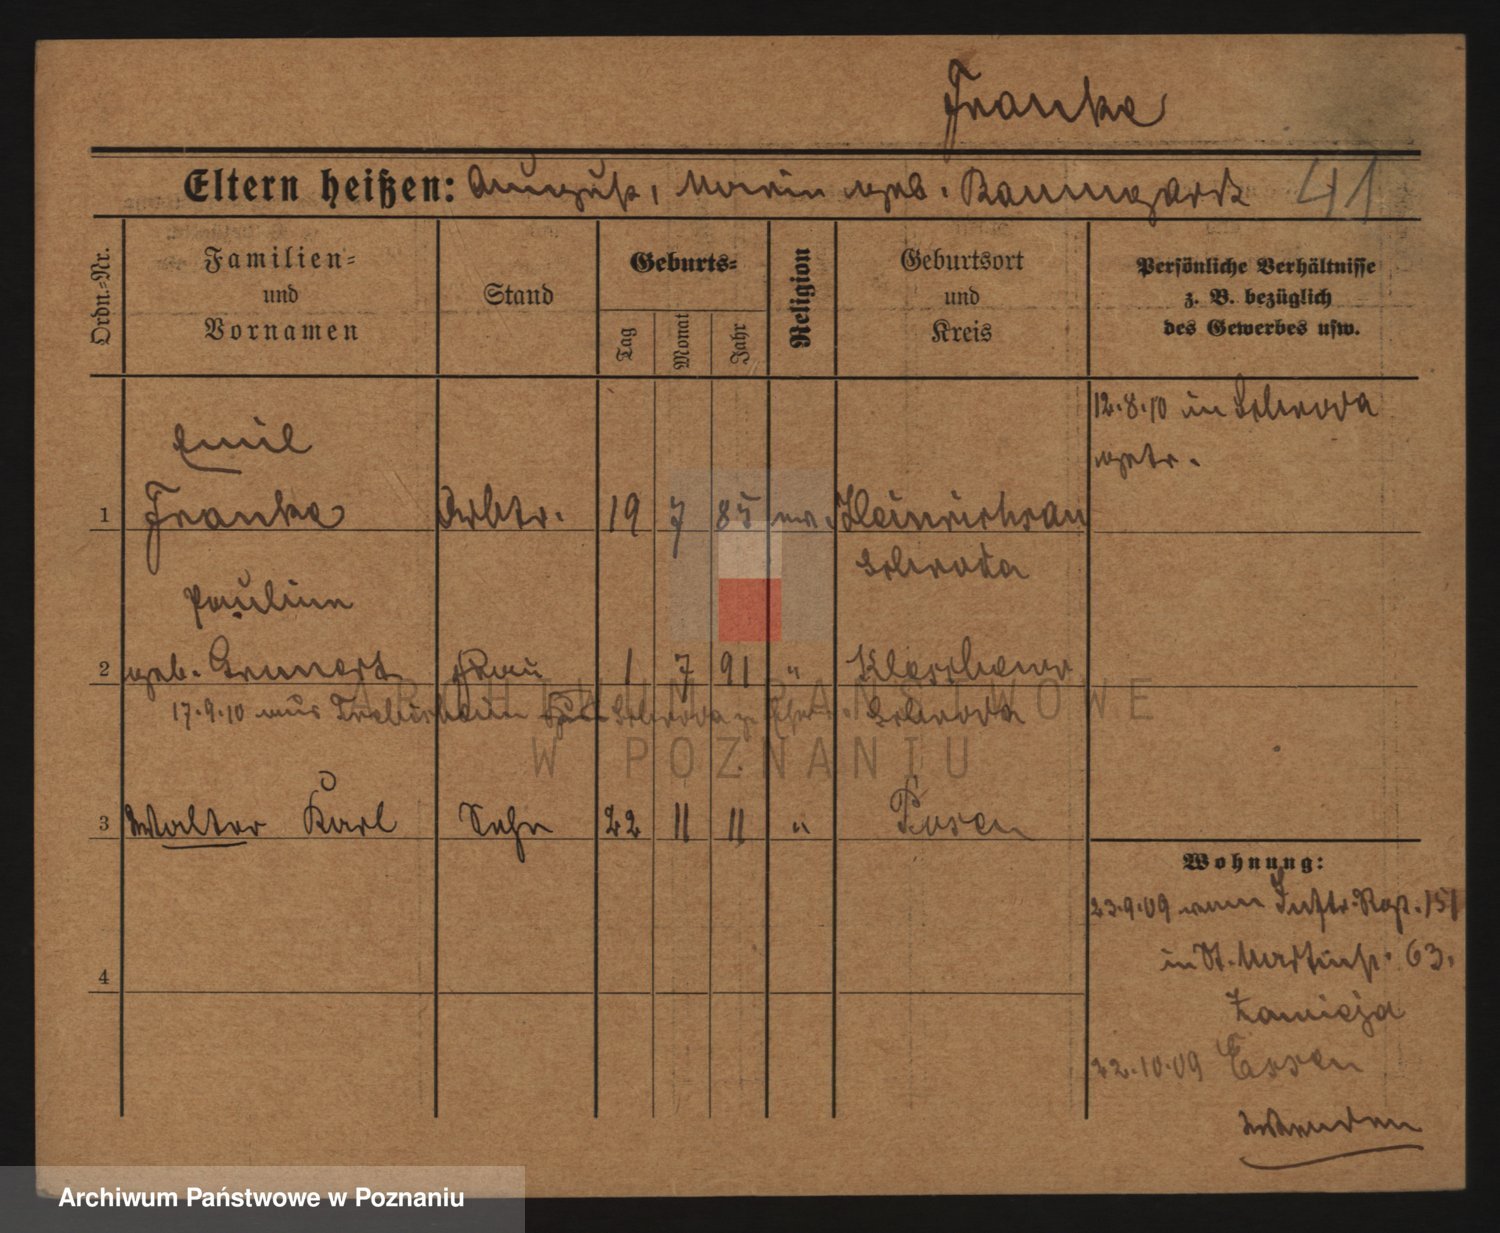 Franke
Eltern heißen: August, Marie geb. Baumgardt 41
Ordn.-Nr.
Familien- und Vornamen
Stand
Geburts-
Tag
Monat
Jahr
Religion
Geburtsort und Kreis
Persönliche Verhältnisse
z. B. bezüglich
des Gewerbes usw.
12.8.10 in Schroda
getr.
Emil
1 Franke Arbtr. 19 7 85 ev. Heinrichsau
Schroda
Pauline
2 geb. Grunert Frau 1 7 91 " Kleschewo
17.9.10 aus Schroda Schroda
3 Walter Karl Sohn 22 11 11 " Posen
Wohnung:
23.9.09 vom Inftr. Rgt. 151
in St. Martinstr. 63.
Zamieja
22.10.09 Essen
4
wenden
ARCHIWUM PAŃSTWOWE
W POZNANIU
Archiwum Państwowe w Poznaniu